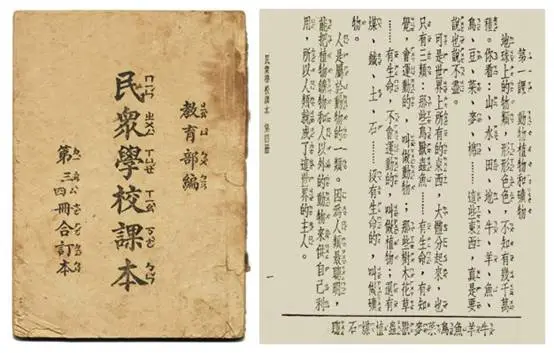 教育部編
民眾學校課本
第三四冊合訂本
第一課 動物植物和礦物
地球上的物類,形形色色,不知有幾千萬
種。你看:山、水、田、地、牛、羊、魚、
鳥、豆、菜、麥、棉……這些東西,真是要
說也說不盡。
可是世界上所有的東西,大體分起來,也
只有三類:那些鳥獸蟲魚……有生命,有知
覺,會運動的,叫做動物;那些樹木花草
……有生命,不會運動的,叫做植物;還有
煤、鐵、土、石……沒有生命的,叫做礦
物。
人是屬於動物的一類。因爲人類最聰明,
能把植物礦物和人以外的動物來供自己利
用,所以人類就成了這世界的主人。
民眾學校課本 第四冊
一
牛羊魚鳥菜麥獸蟲植礦石聰